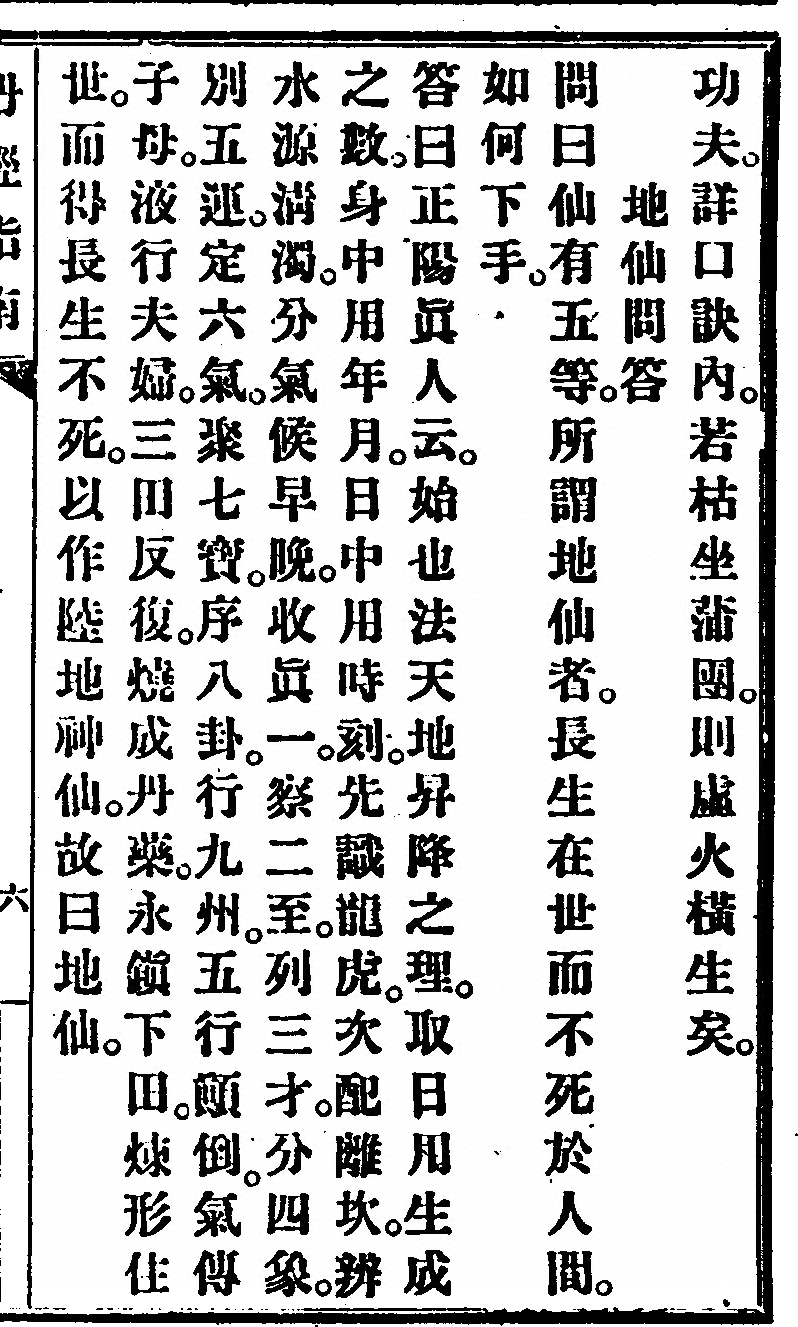 功夫。詳口訣內。若枯坐蒲團。則虛火橫生矣。
地仙問答
問曰仙有五等。所謂地仙者。長生在世而不死於人間。
如何下手。
答曰正陽眞人云。始也法天地昇降之理。取日用生成
之數。身中用年月。日中用時刻。先識龍虎。次配離坎。辨
水源淸濁。分氣候早晚。收眞一。察二至。列三才。分四象。
別五運。定六氣。聚七寶。序八卦。行九州。五行顚倒。氣傳
子母。液行夫婦。三田反復。燒成丹藥。永鎭下田。煉形住
世。而得長生不死。以作陸地神仙。故曰地仙。
丹經指南
六